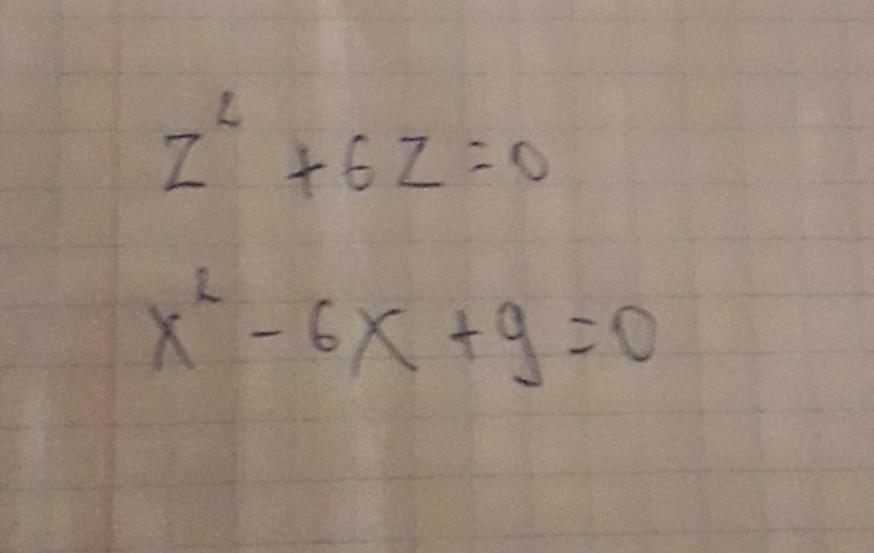 z² + 6z = 0
x² - 6x + 9 = 0